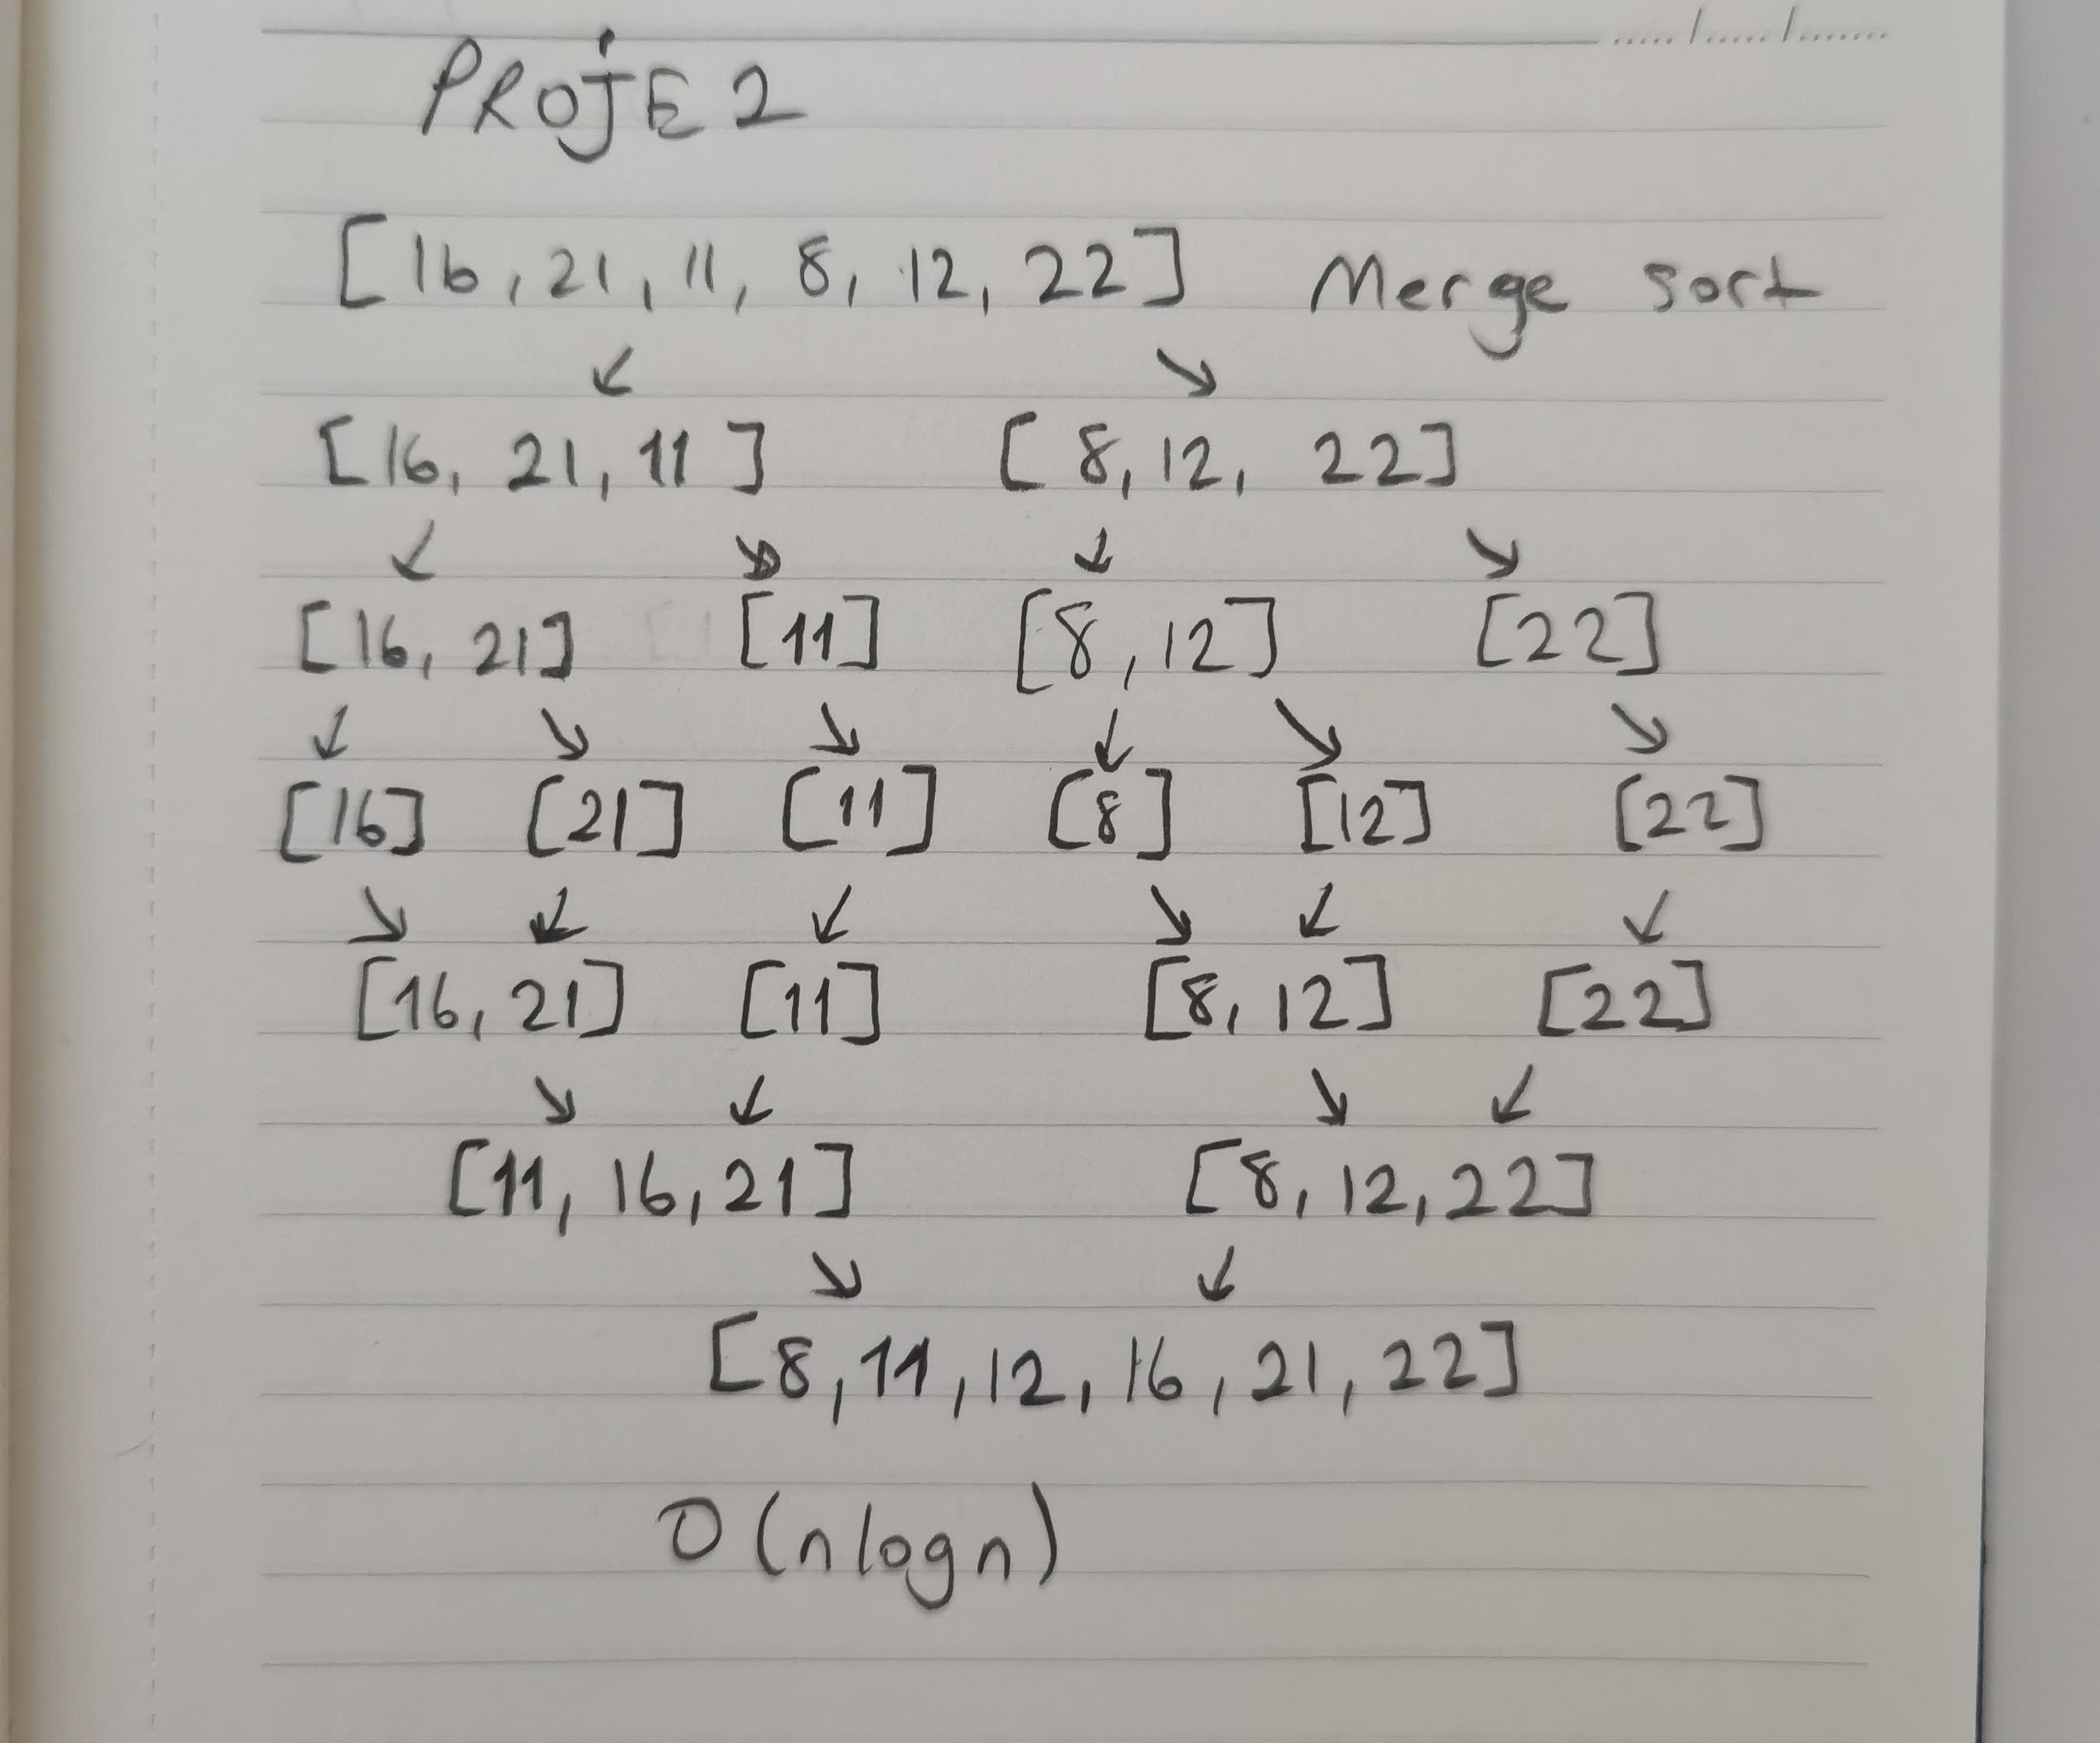 PROJE 2
[16, 21, 11, 8, 12, 22] Merge sort
↙ ↘
[16, 21, 11] [8, 12, 22]
↙ ↘ ↙ ↘
[16, 21] [11] [8, 12] [22]
↙ ↘ ↘ ↙ ↘ ↘
[16] [21] [11] [8] [12] [22]
↘ ↙ ↙ ↘ ↙ ↙
[16, 21] [11] [8, 12] [22]
↘ ↙ ↘ ↙
[11, 16, 21] [8, 12, 22]
↘ ↙
[8, 11, 12, 16, 21, 22]
O(nlogn)